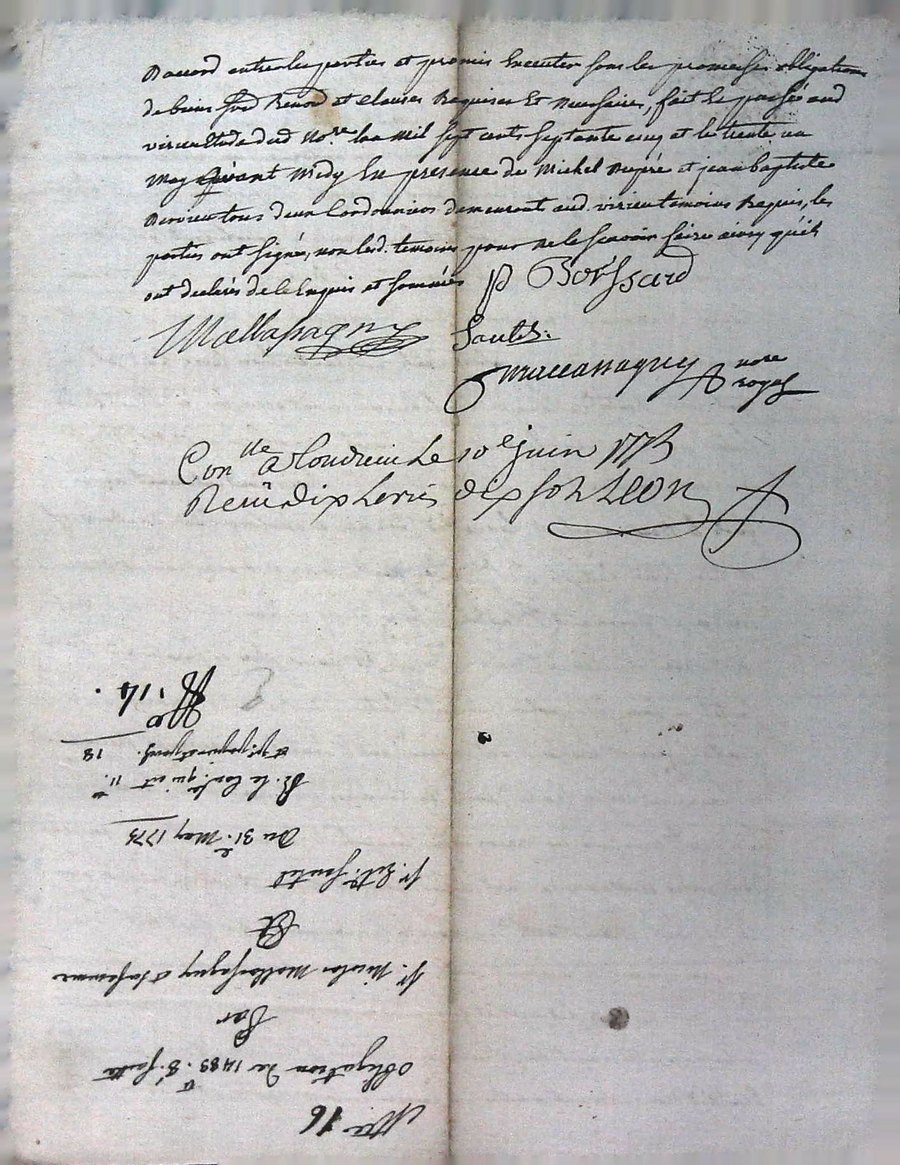 D'accord entre les parties et promis Executer sous les promesses obligations
de biens Renond et Clauses Requises Et Necessaires, fait Et passé aud
virieu Etude dud No.re l'an Mil sept cents septante cinq et le trente un
May avant Midy En presence de Michel Dupré et jean baptiste
tous deux Cordonniers demeurant aud. virieu temoins Requis, les
parties ont signé, non lesd. temoins pour ne le sçavoir faire ainsy qu'ils
ont declarés de ce Enquis et sommés p Boissard
Mallassagny Sautel.
Mallassagny nore
royal
Con.lle a Le 10e juin 1775
Receü dix Livres dix sols Leon
N.re 16
obligation de 1485. #
Par
Sr. Nicolas Mallassagny et sa femme
A
Sr. Sautel
Du 31e May 1775
R. le qui est 11.
18
14.